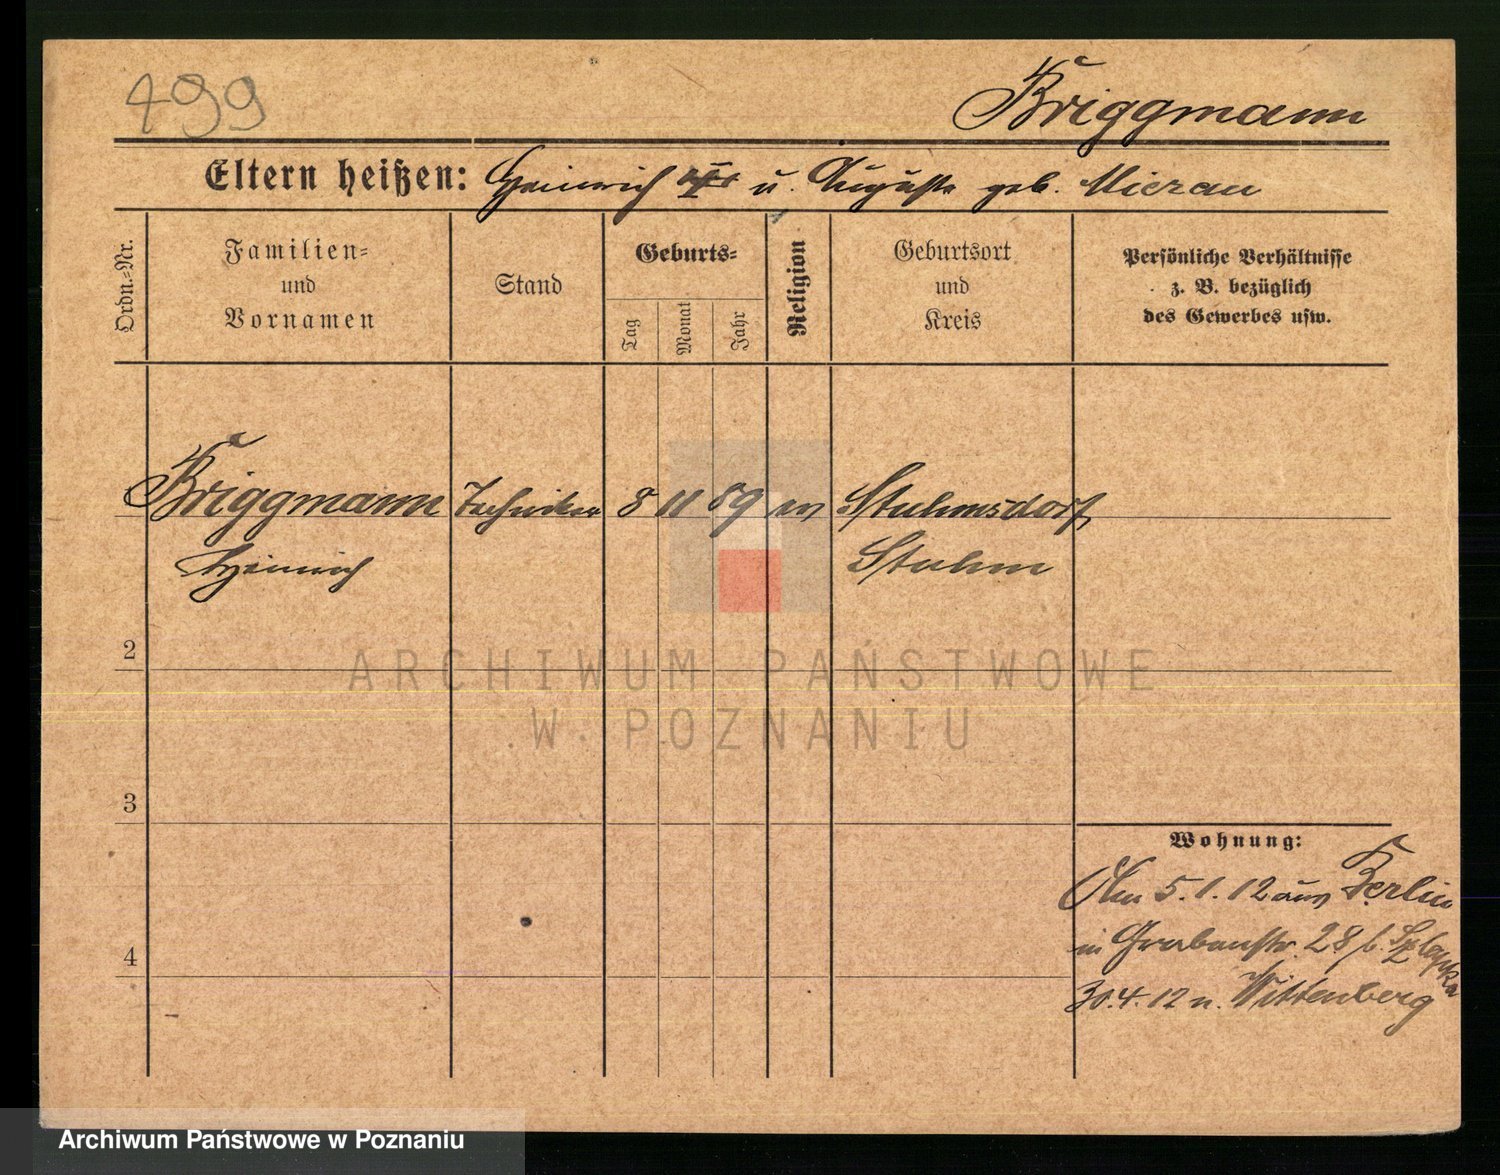 499
Briggmann
Eltern heißen: Heinrich u. Auguste geb. Mierau
Ordn.-Nr.
Familien-
und
Vornamen
Stand
Geburts-
Tag
Monat
Jahr
Religion
Geburtsort
und
Kreis
Persönliche Verhältnisse
z. B. bezüglich
des Gewerbes usw.
Briggmann Techniker 8 11 89 Stuhmsdorf
Heinrich Stuhm
2
ARCHIWUM PAŃSTWOWE
W POZNANIU
3
Wohnung:
Am 5.1.12 aus Berlin
in Grabenstr. 28 b.
4
30.4.12 n. Wittenberg
Archiwum Państwowe w Poznaniu